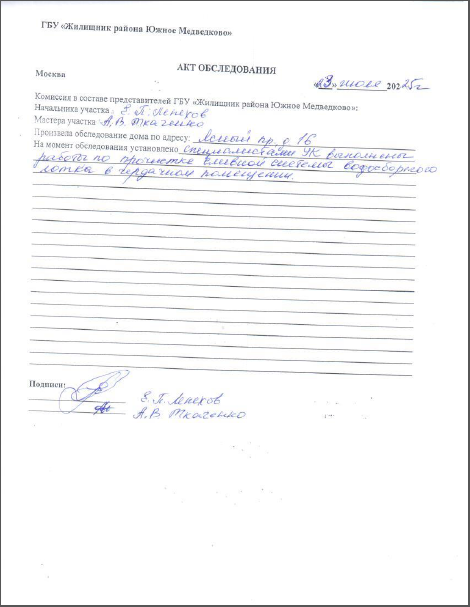 ГБУ «Жилищник района Южное Медведково»
АКТ ОБСЛЕДОВАНИЯ
Москва «23» июля 2025г
Комиссия в составе представителей ГБУ «Жилищник района Южное Медведково»:
Начальника участка Е.П. Лепехов
Мастера участка А.В Ткаченко
Произвела обследование дома по адресу: Ясный пр. д 16
На момент обследования установлено специалистами УК выполнены
работы по прочистке ливневой системы водосборного
лотка в чердачном помещении.
Подписи:
Е.П. Лепехов
А.В Ткаченко